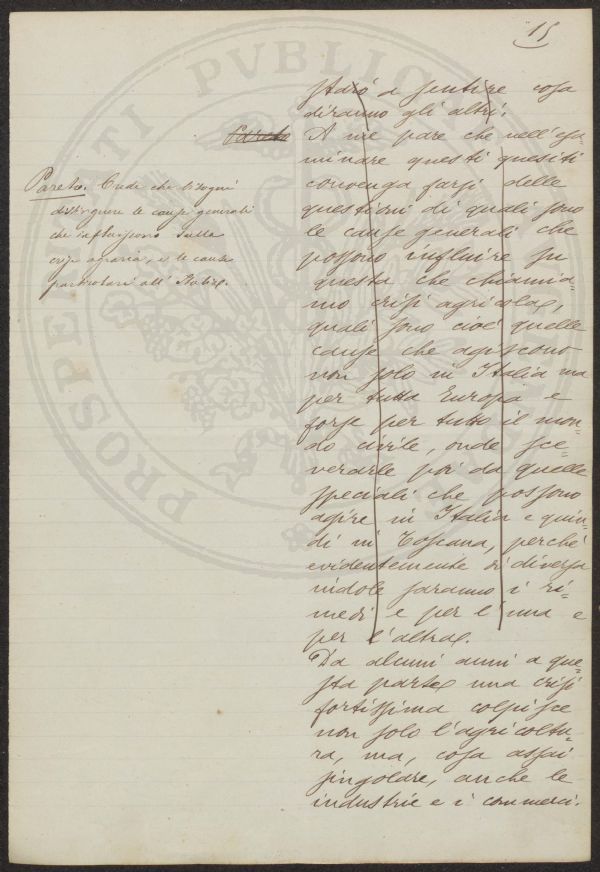 15
starò a sentire cosa
diranno gli altri.
Pareto
A me pare che nell'esa=
minare questi quesiti
convenga farsi delle
questioni di quali sono
le cause generali che
possono influire su
questa che chiamia=
mo crisi agricola,
quali sono cioè quelle
cause che agiscono
non solo in Italia ma
per tutta Europa e
forse per tutto il mon=
do civile, onde sce=
verarle poi da quelle
speciali che possono
agire in Italia e quin=
di in Toscana, perchè
evidentemente di diversa
indole saranno i ri=
medi e per l'una e
per l'altra.
Da alcuni anni a que=
sta parte una crisi
fortissima colpisce
non solo l'agricoltu=
ra, ma, cosa assai
singolare, anche le
industrie e i commerci.
Pareto. Crede che bisogni
distinguere le cause generali
che influiscono sulla
crisi agraria, e le cause
particolari all'Italia.
PROSPERITATI PVBLICAE